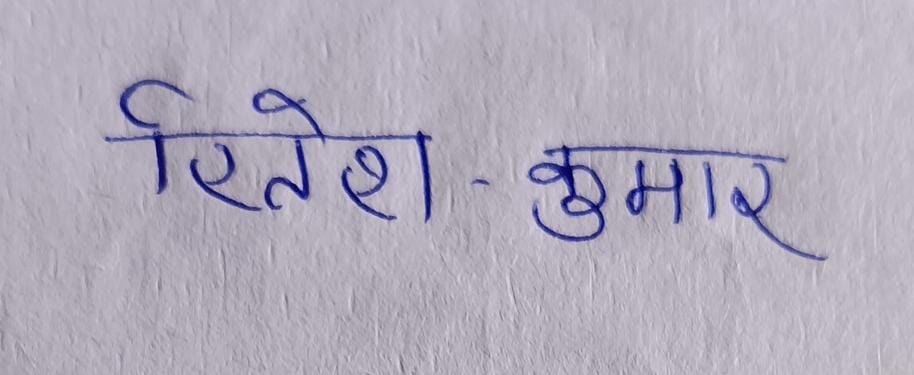 रितेश - कुमार